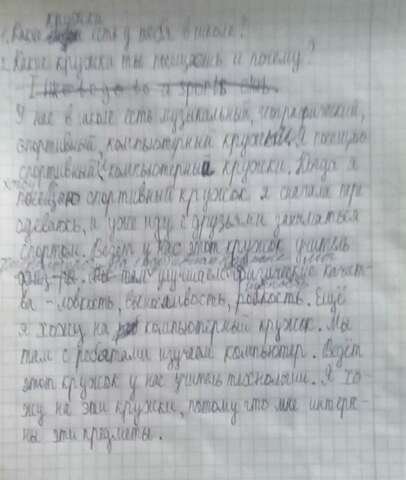 кружки
1. Какие есть у тебя в школе?
2. Какие кружки ты посещаешь и почему?
I like to go to a sports club.
У нас в школе есть музыкальный, географический,
спортивный, компьютерный кружки. Я посещаю
спортивный, компьютерный кружки. Когда я
посещаю спортивный кружок я сначала пере
одеваюсь, и уже иду с друзьями заниматься
спортом. Ведёт у нас этот кружок учитель
физ-ры. Мы там улучшаем физические качест-
ва - ловкость, выносливость, Ещё
я хожу на компьютерный кружок. Мы
там с робятами изучаем компьютер. Ведёт
этот кружок у нас учитель технологии. Я хо-
жу на эти кружки, потому что мне интере-
ны эти предметы.